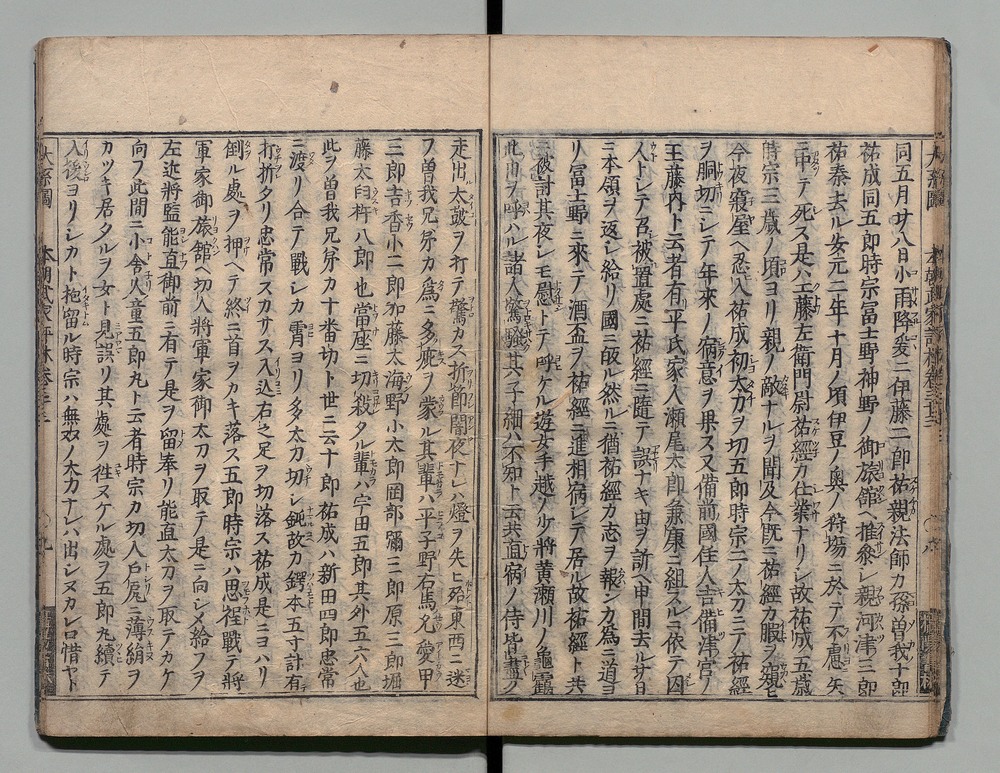 同五月廿八日小雨降爰ニ伊藤二郎祐親法師カ孫曽我十郎
祐成同五郎時宗冨士野神野ノ御旅舘ヘ推參シ親河津三郎
祐泰去ル安元二年十月ノ頃伊豆ノ奥ノ狩塲ニ於テ不慮矢
ニ中テ死ス是ハ工藤左衛門尉祐經カ仕業ナリ故祐成五歳
時宗三歳ノ頃ヨリ親ノ敵ナルヲ聞及今既ニ祐經カ暇ヲ窺ヒ
今夜寢屋ヘ忍入祐成初太刀ヲ切五郎時宗二ノ太刀ニテ祐經
ヲ胴切ニシテ年來ノ宿意ヲ果ス又備前國住人吉備津宮ノ
王藤内ト云者有平氏家人瀬尾太郎兼康ニ組スルニ依テ囚
人トシテ召被置處ニ祐經ニ隨テ誤ナキ由ヲ訴ヘ申間去ル廿日
ニ本領ヲ返シ給リ國ニ皈ル然ルニ猶祐經カ志ヲ報ンカ為ニ道ヨ
リ冨士野ニ來テ酒盃ヲ祐經ニ進相宿シテ居ル故祐經ト共
ニ被討其夜シモ慰トテ呼ケル遊女手越ノ少將黄瀬川ノ亀靏
此由ヲ呼ハル諸人驚騒共其子細ハ不知ト云共直宿ノ侍皆盡ク
走出太鼓ヲ打テ驚カス折節闇夜ナレハ燈ヲ失ヒ東西ニ迷
フ曽我兄弟カ為ニ多疵ヲ蒙ル其輩ハ平子野右馬允愛甲
三郎吉香小二郎加藤太海野小太郎岡部彌三郎原三郎堀
藤太臼杵八郎也當座ニ切殺タル輩ハ宇田五郎其外五六人也
此ヲ曽我兄弟カ十番切ト世ニ云十郎祐成ハ新田四郎忠常
ニ渡リ合テ戰シカ霄ヨリ多太刀切シ鈍故カ鍔本五寸計有
打折タリ忠常スカサス入込右之足ヲ切落ス祐成是ニヨハリ
倒ル處ヲ押ヘテ終ニ首ヲカキ落ス五郎時宗ハ思程戰テ將
軍家御旅館ヘ切入將軍家御太刀ヲ取テ是ニ向シメ給フヲ
左近將監能直御前ニ有テ是ヲ留奉リ能直太刀ヲ取テカケ
向フ此間ニ小舎人童五郎丸ト云者時宗カ切入戸尻ニ薄絹ヲ
カツキ居タルヲ女ト見誤リ其處ヲ徃ヌケル處ヲ五郎丸續テ
入後ヨリシカト抱留ル時宗ハ無双ノ大力ナレハ出シヌカレロ惜ヤト
大系圖
本朝武家評林卷三十三
九